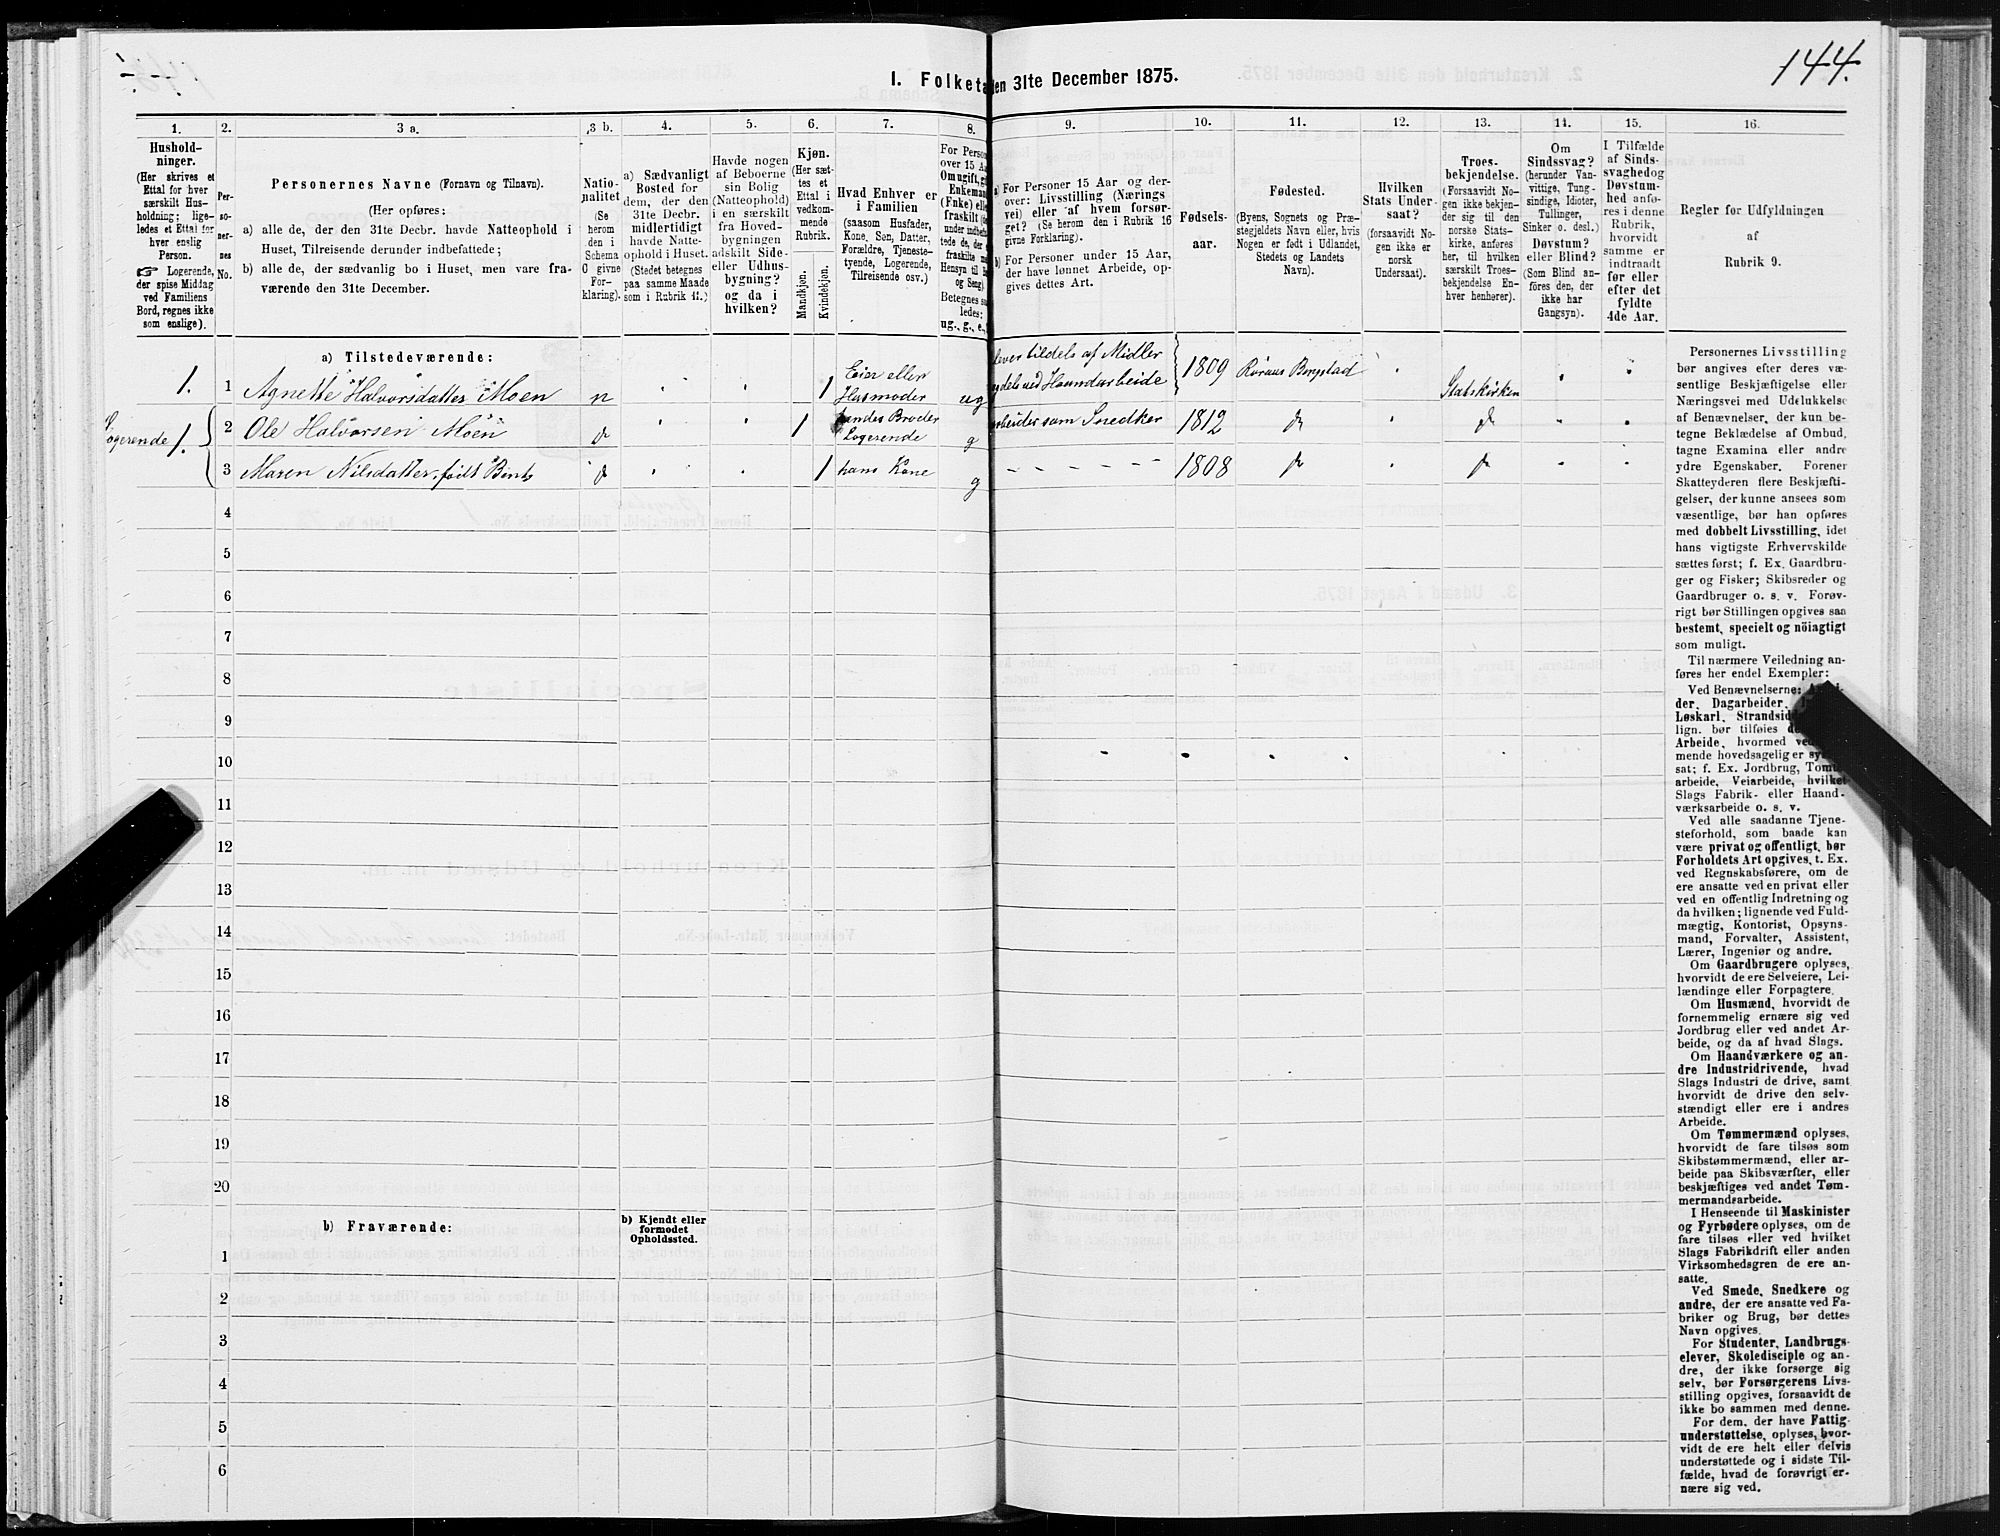 144.
I. Folketa
den 31te December 1875.
1.
2.
3 a.
3 b.
4.
5.
6.
7.
8.
9.
10.
11.
12.
13.
14.
15.
16.
Hushold-
ninger.
(Her skrives et
Ettal for hver
særskilt Hus-
holdning; lige-
ledes et Ettal for
hver enslig
Person.
☞ Logerende,
der spise Middag
ved Familiens
Bord, regnes ikke
som enslige).
Per-
so-
ner-
nes
No.
Personernes Navne (Fornavn og Tilnavn).
(Her opføres:
a) alle de, der den 31te Decbr. havde Natteophold i
Huset, Tilreisende derunder indbefattede;
b) alle de, der sædvanlig bo i Huset, men vare fra-
værende den 31te December.
Natio-
nalitet
(Se
herom
den i
Schema
C givne
For-
klaring).
a) Sædvanligt
Bosted for
dem, der den
31te Decbr.
midlertidigt
havde Natte-
ophold i Huset.
(Stedet betegnes
paa samme Maade
som i Rubrik 11.)
Havde nogen
af Beboerne
sin Bolig
(Natteophold)
i en særskilt
fra Hoved-
bygningen
adskilt Side-
eller Udhus-
bygning?
og da i
hvilken?
Kjøn.
(Her sæt-
tes et
Ettal i
vedkom-
mende
Rubrik.
Mandkjøn.
Kvindekjøn.
Hvad Enhver er
i Familien
(saasom Husfader,
Kone, Søn, Datter,
Forældre, Tjeneste-
tyende, Logerende,
Tilreisende osv.)
For Person
over 15 Aa
Om ugift, gi
Enkeman
(Enke) elle
fraskilt
under indbe
tede de, der
fraskilte
Hensyn til B
og Seng)
Betegnes sa
ledes:
ug., g., e.,
a) For Personer 15 Aar og der-
over: Livsstilling (Nærings-
vei) eller af hvem forsør-
get? (Se herom den i Rubrik 16
givne Forklaring).
b) For Personer under 15 Aar,
der have lønnet Arbeide, op-
gives dettes Art.
Fødsels-
aar.
Fødested.
(Byens, Sognets og Præ-
stegjeldets Navn eller, hvis
Nogen er født i Udlandet,
Stedets og Landets
Navn).
Hvilken
Stats Under-
saat?
(forsaavidt No-
gen ikke er
norsk
Undersaat).
Troes-
bekjendelse.
(Forsaavidt No-
gen ikke bekjen-
der sig til den
norske Stats-
kirke, anføres
her, til hvilken
særskilt Troes-
bekjendelse En-
hver henhører).
Om
Sindssvag?
(herunder Van-
vittige, Tung-
sindige, Idioter,
Tullinger,
Sinker o. desl.)
Døvstum?
eller Blind?
(Som Blind an-
føres den, der
ikke har
Gangsyn).
I Tilfælde
af Sinds-
svaghed og
Døvstum-
hed anfø-
res i denne
Rubrik,
hvorvidt
samme er
indtraadt
før eller
efter det
fyldte
4de Aar.
Regler for Udfyldningen
af
Rubrik 9.
a) Tilstedeværende:
1. 1 Agnette Halvorsdatter Moen n 1 Eier eller Husmoder ug Lever tildels af Midler tildels ved Haandarbeide 1809 Röraas Bergstad Statskirken
Logerende 1. 2 Ole Halvorsen Moen d 1 hendes Broder Logerende g arbeider som Snedker 1812 d d
3 Maren Nilsdatter, født Bents d 1 hans Kone g - - - - - - 1808 d d
4
5
6
7
8
9
10
11
12
13
14
15
16
17
18
19
20
b) Fraværende:
b) Kjendt eller
formodet
Opholdssted.
1
2
3
4
5
6
Personernes Livsstilling
bør angives efter deres væ-
sentlige Beskjæftigelse eller
Næringsvei med Udelukkelse
af Benævnelser, der kun be-
tegne Beklædelse af Ombud,
tagne Examina eller andre
ydre Egenskaber. Forener
Skatteyderen flere Beskjæfti-
gelser, der kunne ansees som
væsentlige, bør han opføres
med dobbelt Livsstilling, idet
hans vigtigste Erhvervskilde
sættes først; f. Ex. Gaardbru-
ger og Fisker; Skibsreder og
Gaardbruger o. s. v. Forøv-
rigt bør Stillingen opgives saa
bestemt, specielt og nöiagtigt
som muligt.
Til nærmere Veiledning an-
føres her endel Exempler:
Ved Benævnelserne:
der, Dagarbeider,
Løskarl, Strandsid
lign. bør tilføies
Arbeide, hvormed
mende hovedsagelig er
sat; f. Ex. Jordbrug, Tøm
arbeide, Veiarbeide, hvilket
Slags Fabrik- eller Haand-
værksarbeide o. s. v.
Ved alle saadanne Tjene-
steforhold, som baade kan
være privat og offentligt, bør
Forholdets Art opgives, t. Ex.
ved Regnskabsførere, om de
ere ansatte ved en privat eller
ved en offentlig Indretning og
da hvilken; lignende ved Fuld-
mægtig, Kontorist, Opsyns-
mand, Forvalter, Assistent,
Lærer, Ingeniør og andre.
Om Gaardbrugere oplyses,
hvorvidt de ere Selveiere, Lei-
lændinge eller Forpagtere.
Om Husmænd, hvorvidt de
fornemmelig ernære sig ved
Jordbrug eller ved andet Ar-
beide, og da af hvad Slags.
Om Haandværkere og an-
dre Industridrivende, hvad
Slags Industri de drive, samt
hvorvidt de drive den selv-
stændigt eller ere i andres
Arbeide.
Om Tømmermænd oplyses,
hvorvidt de fare tilsøs som
Skibstømmermænd, eller ar-
beide paa Skibsværfter, eller
beskjæftiges ved andet Tøm-
mermandsarbeide.
I Henseende til Maskinister
og Fyrbødere oplyses, om de
fare tilsøs eller ved hvilket
Slags Fabrikdrift eller anden
Virksomhedsgren de ere an-
satte.
Ved Smede, Snedkere og
andre, der ere ansatte ved Fa-
briker og Brug, bør dettes
Navn opgives.
For Studenter, Landbrugs-
elever, Skoledisciple og an-
dre, der ikke forsørge sig
selv, bør Forsørgerens Livs-
stilling opgives, forsaavidt de
ikke bo sammen med denne.
For dem, der have Fattig-
understøttelse, oplyses, hvor-
vidt de ere helt eller delvis
understøttede og i sidste Til-
fælde, hvad de forøvrigt er-
nære sig ved.